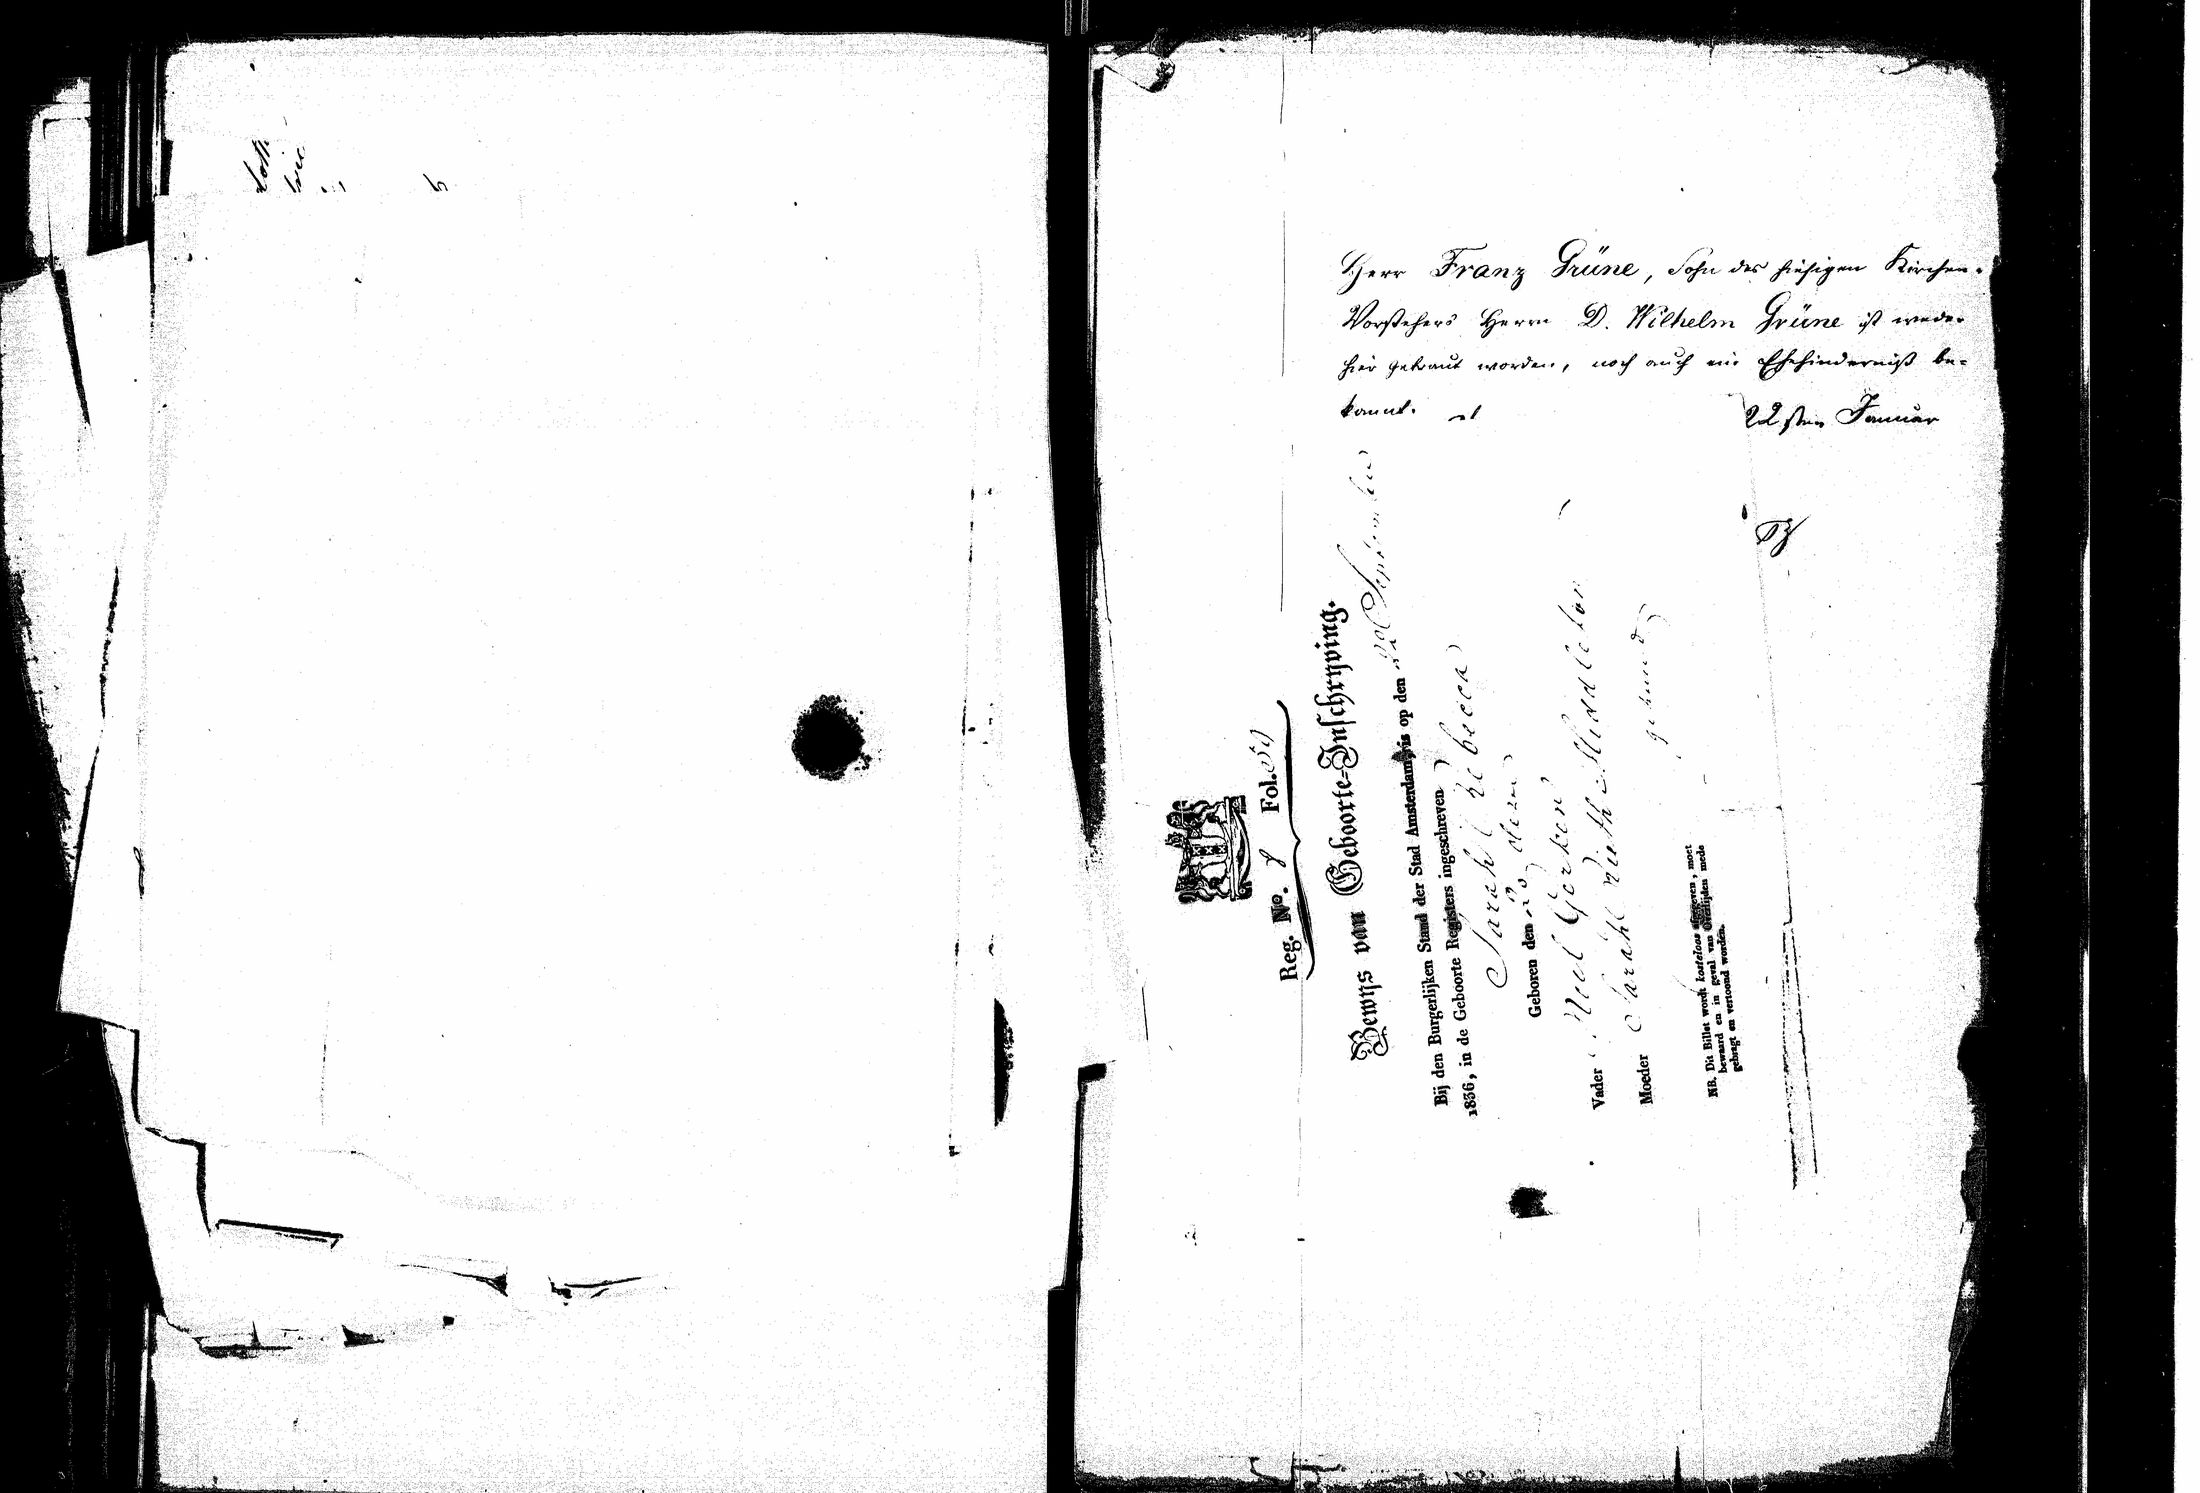 Herr Franz Grüne, Sohn des hiesigen Kirchen-
Vorstehers Herrn D. Wilhelm Grüne ist weder
hier getraut worden, noch auch ein Ehehinderniß be-
kannt.
22sten Januar
Reg. No. 8 Fol.
Bewijs van Geboorte-Inschrijving.
Bij den Burgerlijken Stand der Stad Amsterdam, is op den September
1836, in de Geboorte Registers ingeschreven
Sarah Rebecca
Geboren den
Vader Gerken
Moeder Sarah Ruth Middleton
NB. Dit Billet wordt kosteloos afgegeven, moet
bewaard en in geval van overlijden mede
gebragt en vertoond worden.